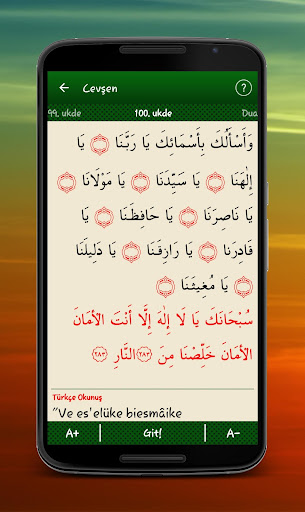 Cevşen
?
99. ukde 100. ukde Dua
وَأَسْأَلُكَ بِأَسْمَائِكَ يَا رَبَّنَا ۝ يَا
إِلٰهَنَا ۝ يَا سَيِّدَنَا ۝ يَا مَوْلَانَا ۝
يَا نَاصِرَنَا ۝ يَا حَافِظَنَا ۝ يَا
قَادِرَنَا ۝ يَا رَازِقَنَا ۝ يَا دَلِيلَنَا
۝ يَا مُغِيثَنَا ۝
سُبْحَانَكَ يَا لَا إِلٰهَ إِلَّا أَنْتَ الْأَمَانَ
الْأَمَانَ خَلِّصْنَا مِنَ ﴿٢٨٣﴾ النَّارِ ﴿٢٨٣﴾
Türkçe Okunuş
"Ve es'elüke biesmâike
A+ Git! A-